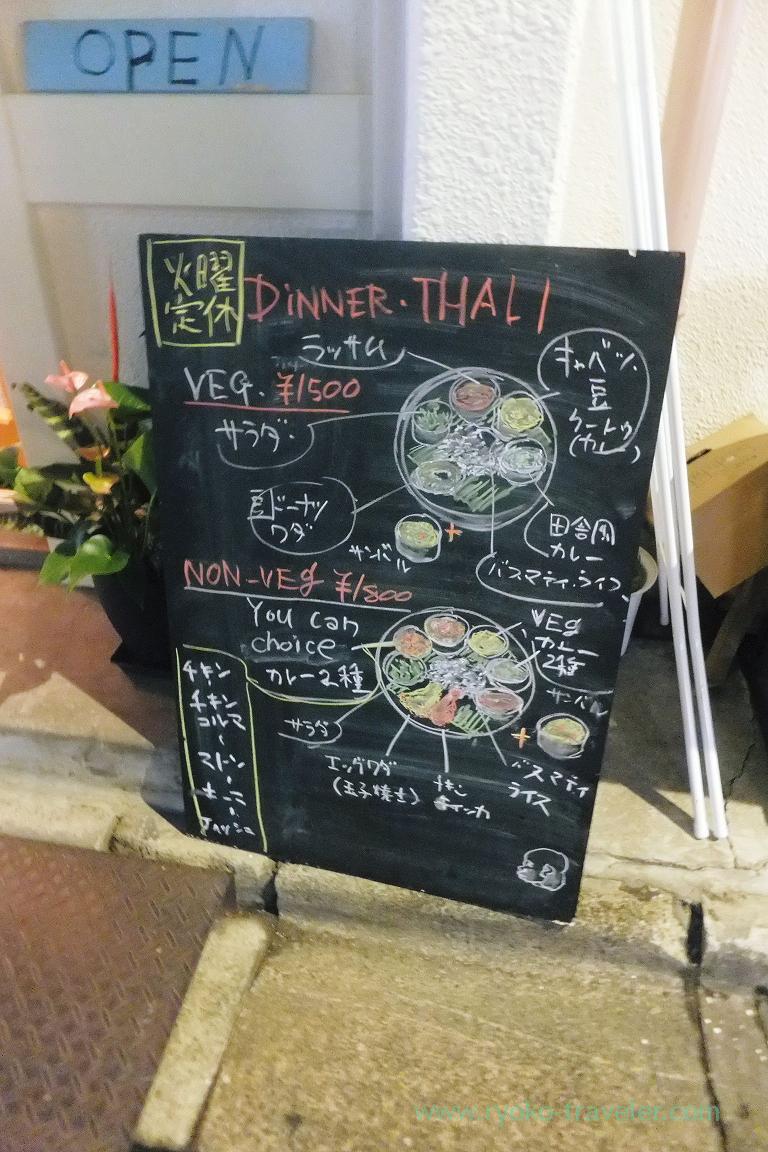 OPEN
火曜
定休
DiNNER・THALI
ラッサム
VEG. ¥1500
キャベツ、
豆
クートゥ
(カレー)
サラダ
豆ドーナツ
ワダ
サンバル
+
田舎風
カレー
バスマティ・ライス
NON-VEg ¥1800
You can
choice
カレー2種
VEg
カレー
2種
チキン
チキン
コルマ
マトン
サンバル
+
サラダ
エッグワダ
(玉子焼き)
バスマティ
ライス
www.ryoko-traveler.com